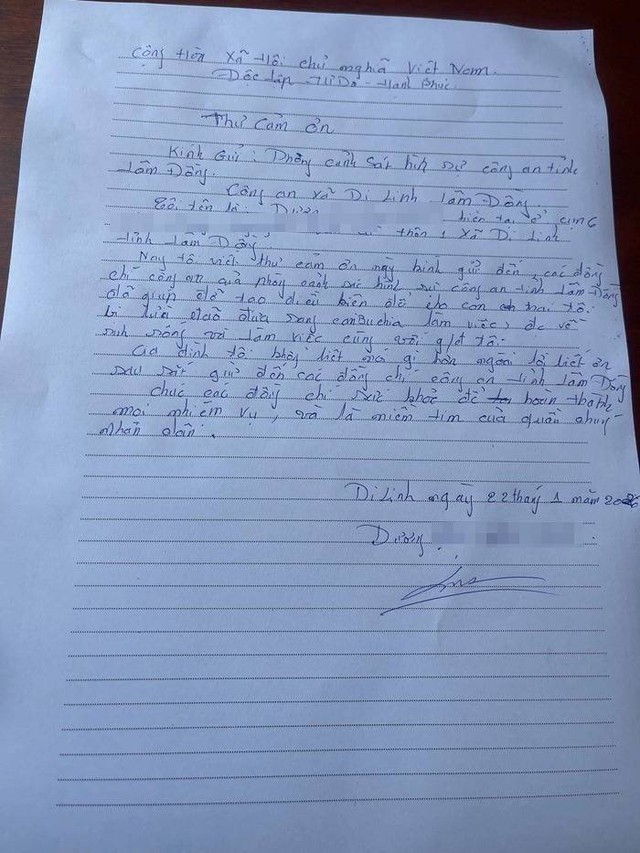 Cộng Hòa Xã Hội Chủ nghĩa Việt Nam.
Độc lập - Tự Do - Hạnh Phúc
Thư Cảm ơn
Kính Gửi: Phòng cảnh sát hình sự công an tỉnh
Lâm Đồng.
Công an xã Di Linh Lâm Đồng.
Tôi tên là: Dương hiện tại ở cụm 6
thôn 1 xã Di Linh
tỉnh Lâm Đồng.
Nay tôi viết thư cảm ơn này kính gửi đến, các đồng
chí công an phòng cảnh sát hình sự công an tỉnh Lâm Đồng
đã giúp đỡ tạo điều kiện để con trai tôi.
bị lừa đảo đưa sang canBuchia làm việc, đc về
sinh sống và làm việc cùng với gđ tôi.
Gia đình tôi không biết nói gì hơn ngoài lời biết ơn
sâu sắc gửi đến các đồng chí công an tỉnh Lâm Đồng
chúc các đồng chí sức khỏe để hoàn thành
mọi nhiệm vụ, và là niềm tin của quần chúng
nhân dân.
Di Linh ngày 22 tháng 1 năm 2026
Dương